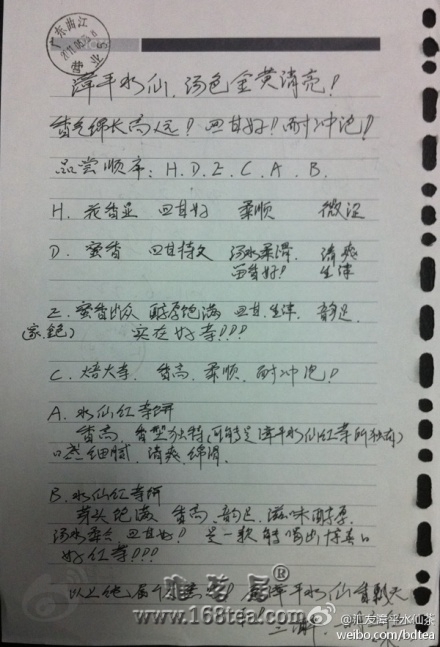 广东曲江
漳平水仙、汤色金黄清亮!
香气绵长高远!回甘好!耐冲泡!
品尝顺序:H.D.E.C.A.B.
H. 花香显 回甘好 柔顺 微涩
D. 蜜香 回甘持久 汤水柔滑 清爽
留香好! 生津
E. 蜜香出众 醇厚饱满 回甘.生津. 韵足.
实在好茶!!!
C. 焙火茶. 香高.柔顺.耐冲泡!
A. 水仙红茶饼
香高.香型独特(可能是漳平水仙红茶所独有)
口感细腻.清爽.绵滑.
B. 水仙红茶饼
芽头肥满 香高.韵足.滋味醇厚.
汤水柔 回甘好! 是一款能喝出 的
好红茶!!!
以上 漳平水仙
雅茗居®
www.168tea.com
@北友漳平水仙茶
weibo.com/bdtea